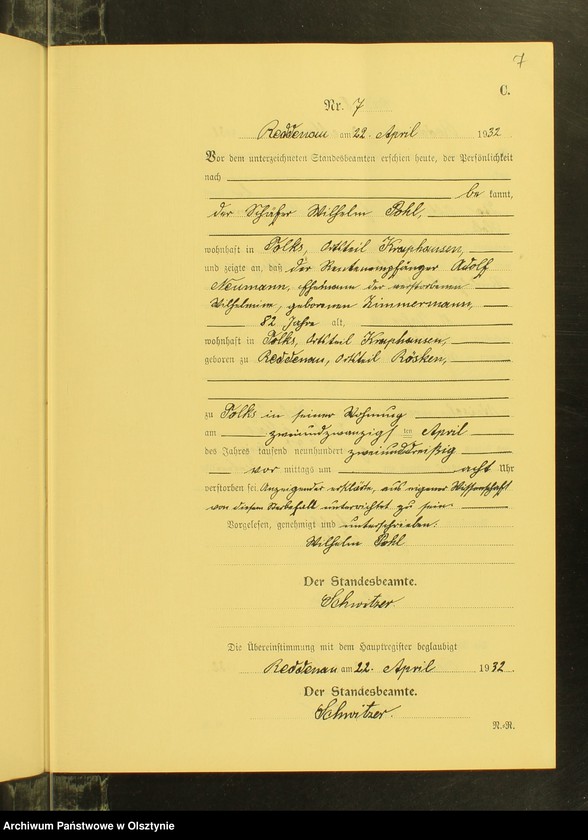 7
C.
Nr. 7
Reddenau am 22. April 1932
Vor dem unterzeichneten Standesbeamten erschien heute, der Persönlichkeit
nach
be kannt,
der Schäfer Wilhelm Pohl,
wohnhaft in Tolks, Ortsteil Kraphausen,
und zeigte an, daß der Rentenempfänger Adolf
Neumann, Ehemann der verstorbenen
Wilhelmine, geborenen Zimmermann,
82 Jahre alt,
wohnhaft in Tolks, Ortsteil Kraphausen,
geboren zu Reddenau, Ortsteil Rösken,
zu Tolks in seiner Wohnung
am zweiundzwanzigs ten April
des Jahres tausend neunhundert zweiunddreißig
vor mittags um acht Uhr
verstorben sei. Anzeigender erklärte, aus eigener Wissenschaft
von diesem Sterbefall unterrichtet zu sein.
Vorgelesen, genehmigt und unterschrieben.
Wilhelm Pohl
Der Standesbeamte.
Schwitzer
Die Übereinstimmung mit dem Hauptregister beglaubigt
Reddenau am 22. April 1932.
Der Standesbeamte.
Schwitzer.
N.-R.
Archiwum Państwowe w Olsztynie